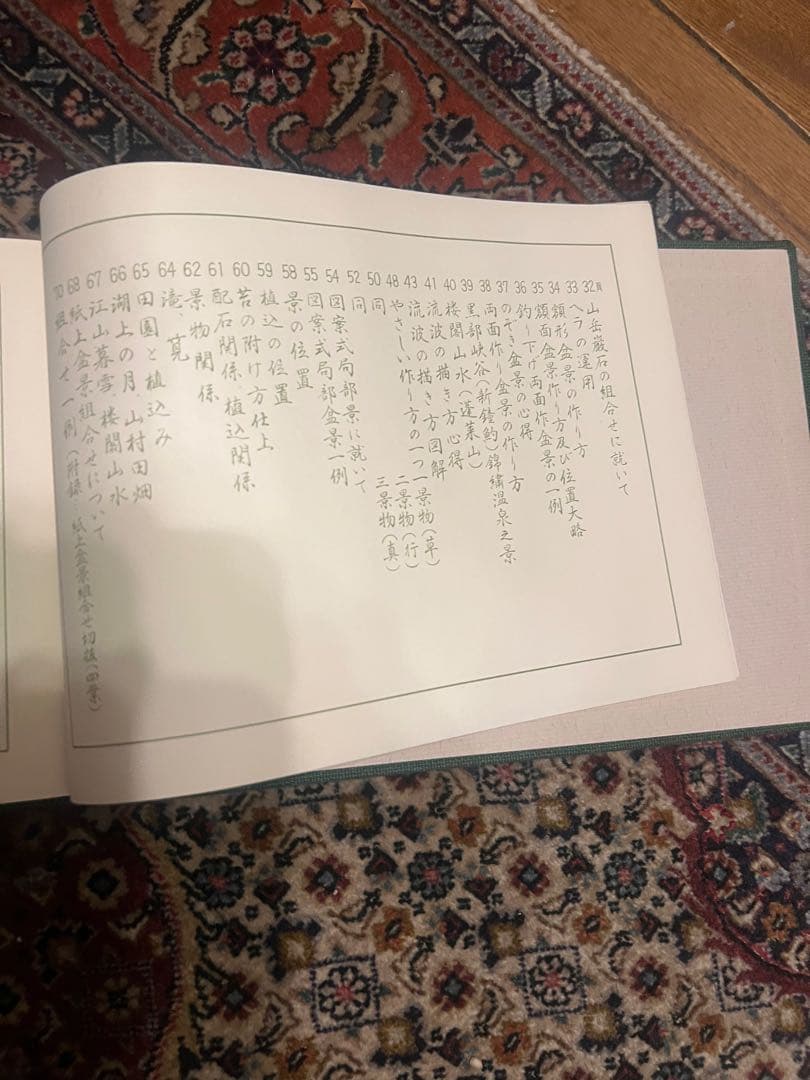 32頁 山岳巌石の組合せに就いて
33 ヘラの運用
34 額形盆景の作り方
35 額面盆景作り方及び位置大略
36 釣り下げ両面作盆景の一例
37 のぞき盆景の心得
38 両面作り盆景の作り方
39 黒部峡谷(新鐘釣)錦繍温泉之景
40 楼閣山水(蓬莱山)
41 流波の描き方心得
43 流波の描き方図解
48 やさしい作り方の一つ 一景物(草)
50 同 二景物(行)
52 同 三景物(真)
54 図案式局部景に就いて
55 図案式局部盆景一例
58 景の位置
59 植込の位置
60 苔の附け方仕上
61 配石関係.植込関係
62 景物関係
64 滝 筧
65 田園と植込み
66 湖上の月.山村田畑
67 江山暮雪.楼閣山水
68 紙上盆景組合せについて
70 組合せ一例(附録.紙上盆景組合せ切抜(四景)